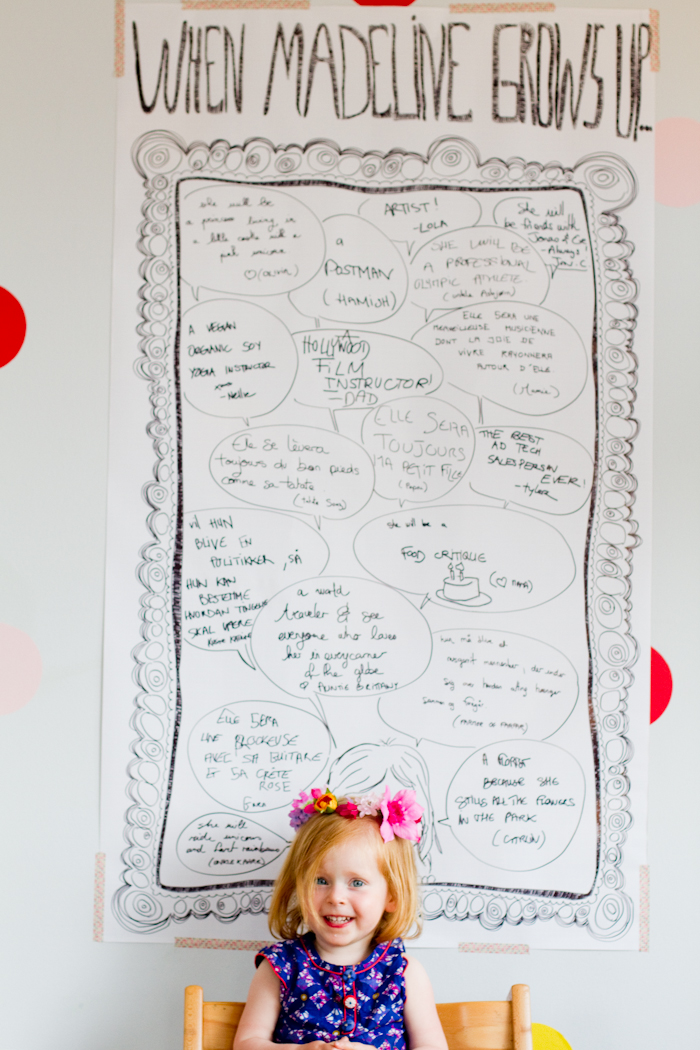 WHEN MADELINE GROWS UP...
she will be
a princess living in
a little castle with a
pink unicorn
♡(Olivia)
ARTIST!
-LOLA
She will
be friends with
Jonas & Co
-Always!
Jon. C
a
POSTMAN
(HAMISH)
SHE WILL BE
A PROFESSIONAL
OLYMPIC ATHLETE
A VEGAN
ORGANIC SOY
YOGA INSTRUCTOR
-Nellie
HOLLYWOOD
FILM
INSTRUCTOR!
-DAD
ELLE SERA UNE
MERVEILLEUSE MUSICIENNE
DONT LA JOIE DE
VIVRE RAYONNERA
AUTOUR D'ELLE
(Mamie)
Elle se lèvera
toujours du bon pieds
comme sa tata
ELLE SERA
TOUJOURS
MA PETIT FILLE
(Papi)
THE BEST
AD TECH
SALESPERSON
EVER!
-Tyler
VIL HUN
BLIVE EN
POLITIKKER, SÅ
HUN KAN
BESTEMME
HVORDAN TINGENE
SKAL VÆRE
she will be a
FOOD CRITIQUE
(♡ MAMA)
a world
traveler & see
everyone who loves
her in every corner
of the globe
♡ AUNTIE BRITTANY
hun må blive et
(FARMOR OG FARFAR)
ELLE SERA
UNE ROCKEUSE
AVEC SA GUITARE
& SA CRÊTE
ROSE
A
BECAUSE SHE
STILLS ALL THE FLOWERS
IN THE PARK
she will
ride unicorns
and fart rainbows